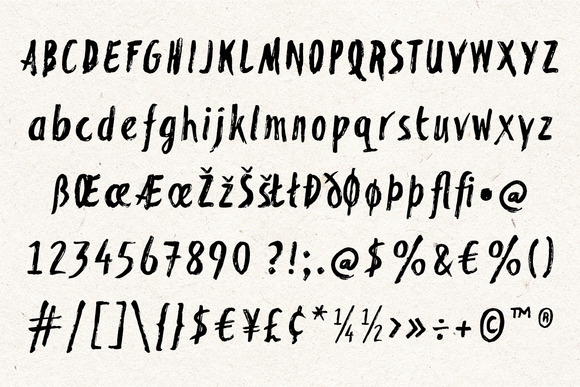 ABCDEFGHIJKLMNOPQRSTUVWXYZ
abcdefghijklmnopqrstuvwxyz
ßŒœÆœŽžŠšŁłÐðØøÞþflfi•@
1234567890 ?!;.@$%&€%()
#/[]\{}$€¥£¢*¼½›»÷+©™®